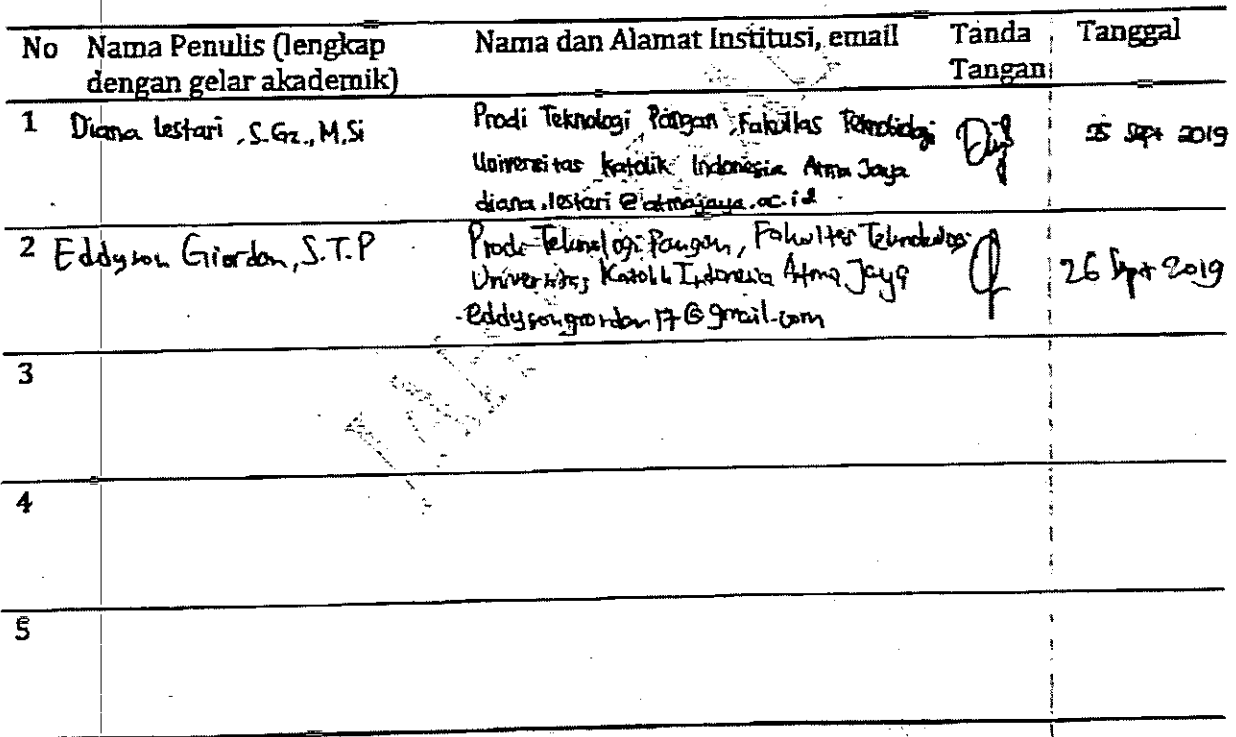 No Nama Penulis (lengkap dengan gelar akademik) Nama dan Alamat Institusi, email Tanda Tangan Tanggal
1 Diana Lestari, S.Gz., M.Si
Prodi Teknologi Pangan, Fakultas Teknobiologi
Universitas Katolik Indonesia Atma Jaya
diana.lestari@atmajaya.ac.id
25 Sept 2019
2 Eddyson Giordan, S.T.P
Prodi Teknologi Pangan, Fakultas Teknobiologi
Universitas Katolik Indonesia Atma Jaya
eddysongiordan17@gmail.com
26 Sept 2019
3
4
5